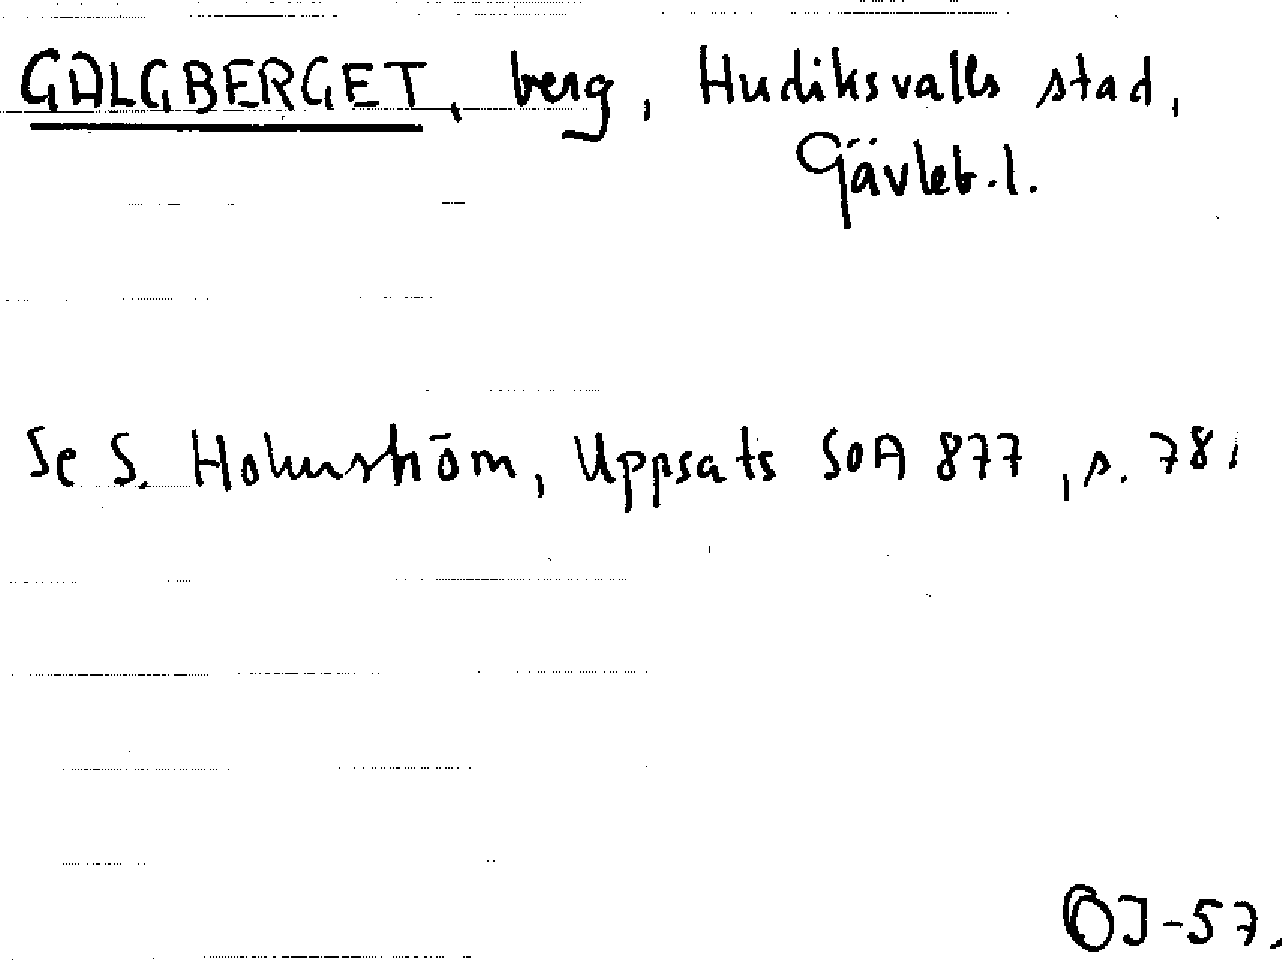 GALGBERGET, berg, Hudiksvalls stad,
Gävleb.l.
Se S. Holmström, Uppsats SOA 877, s. 78.
OJ-57.